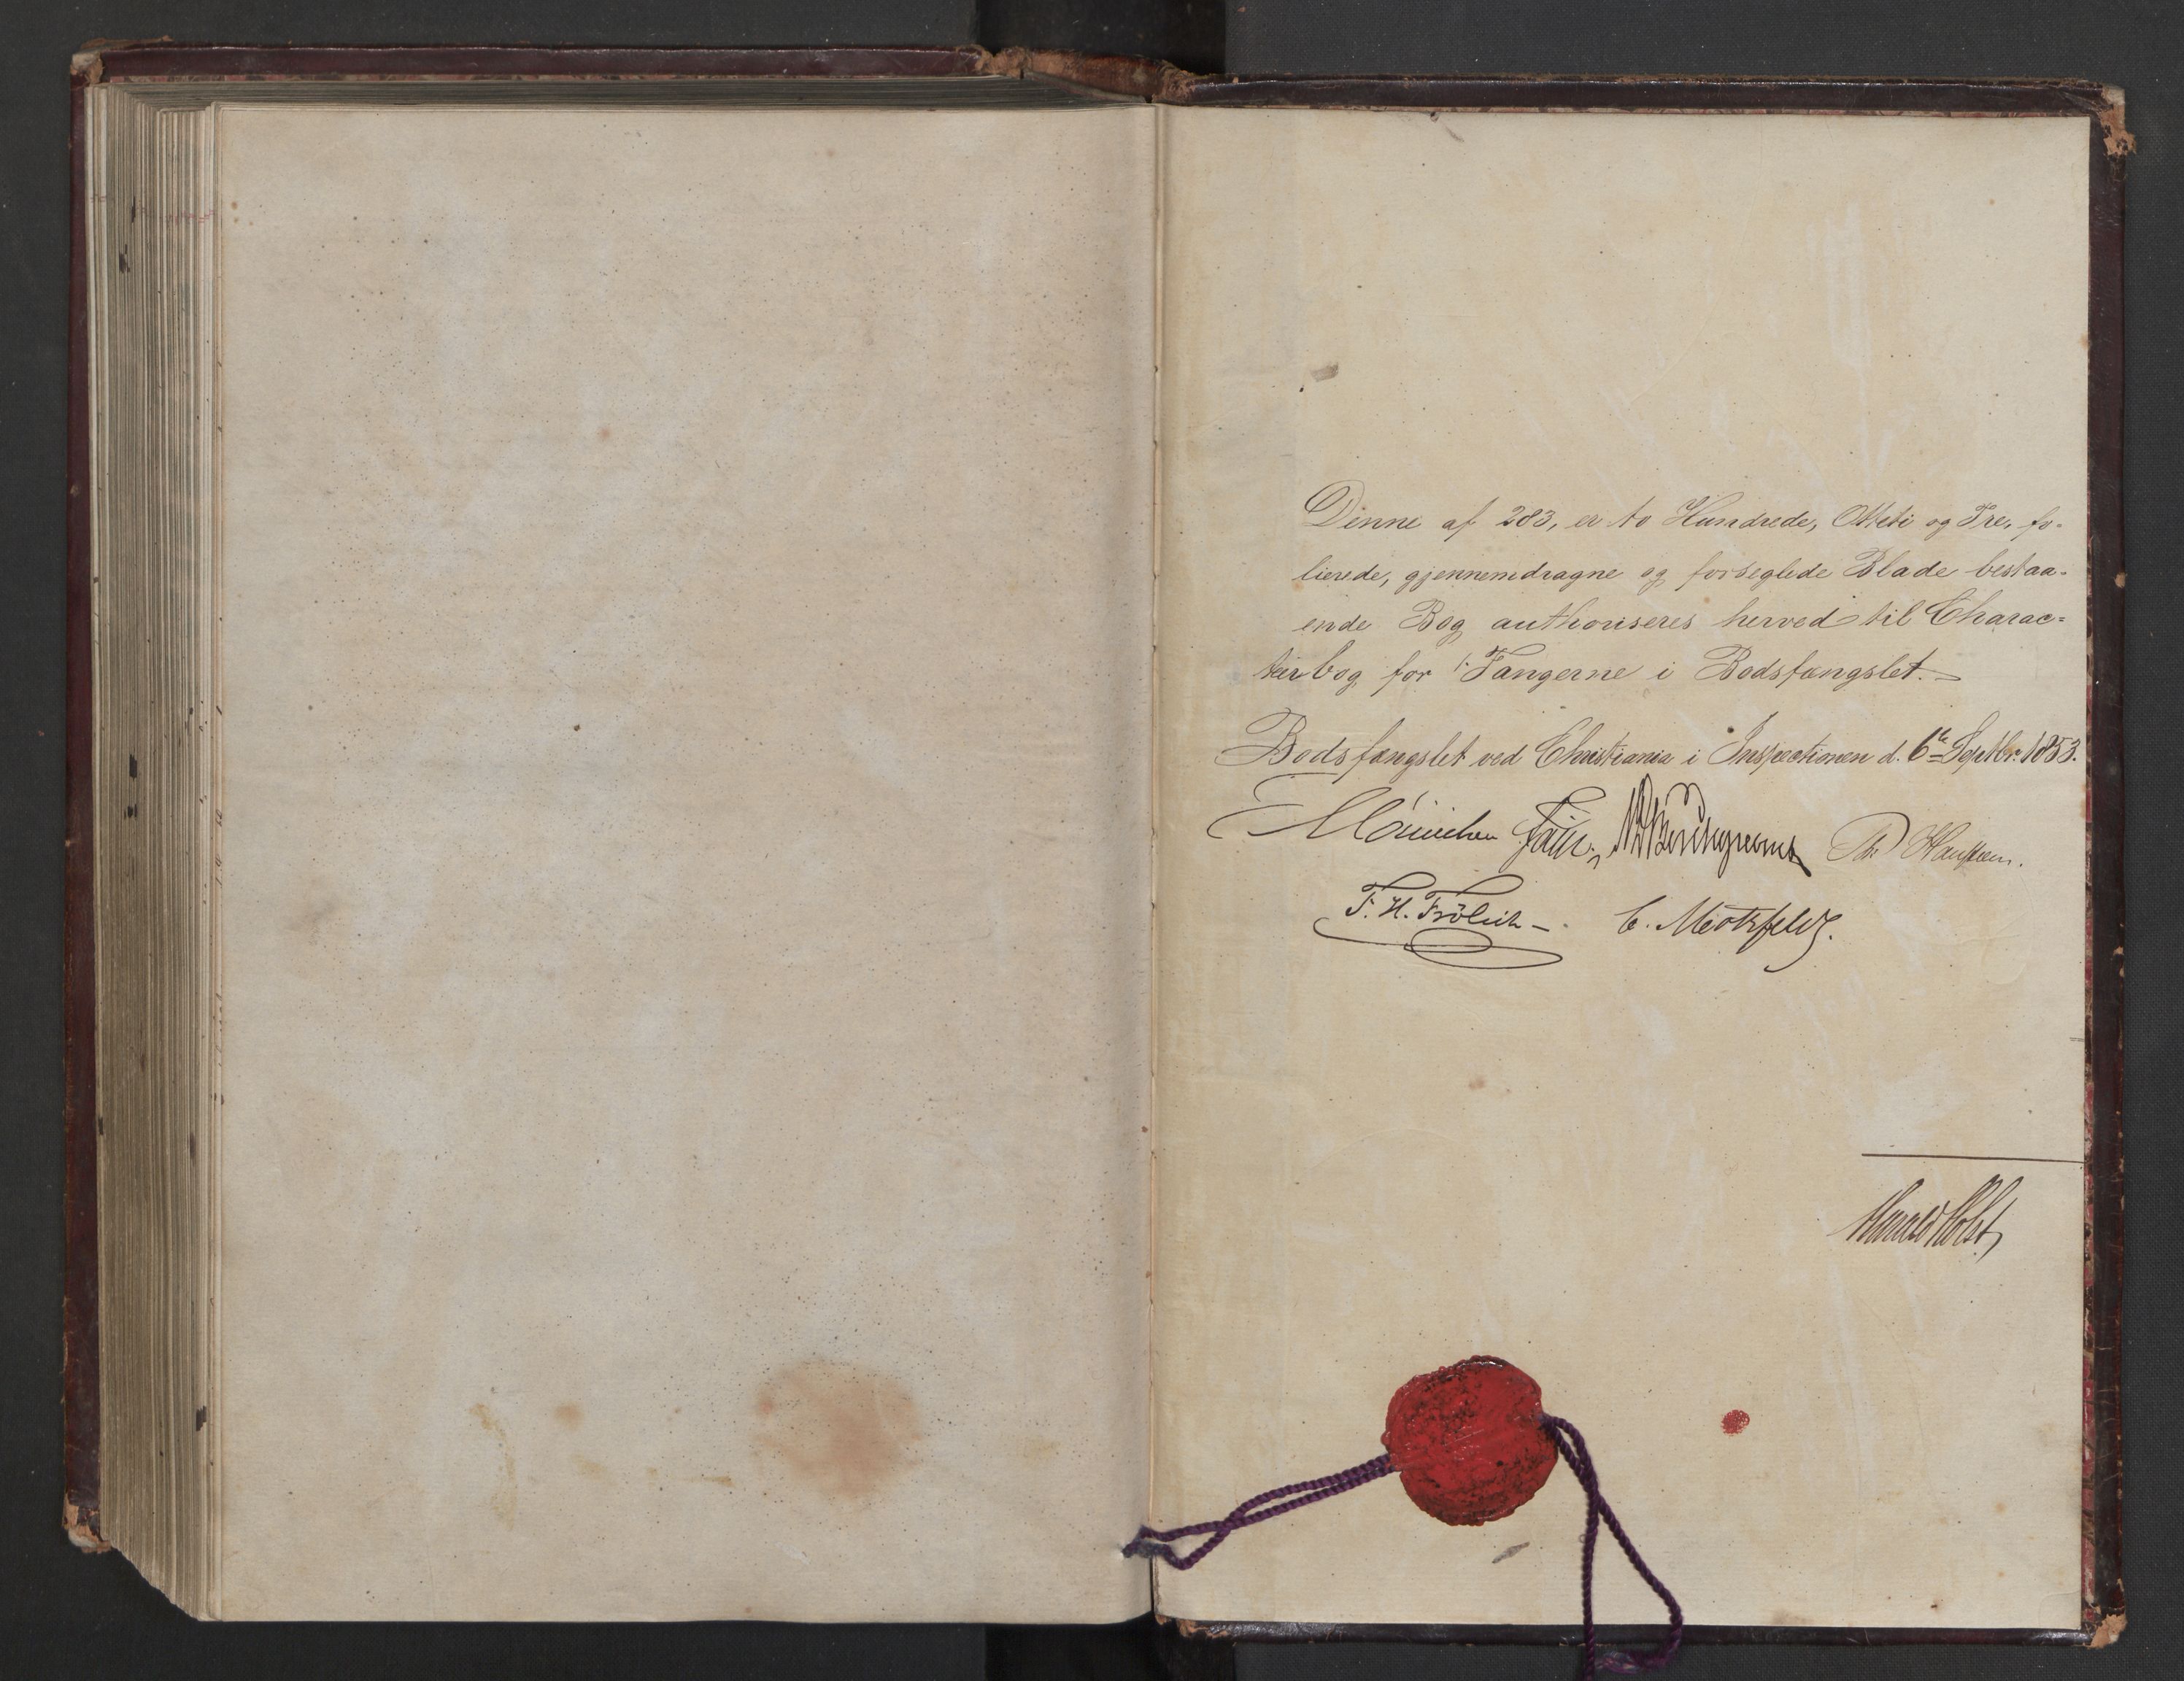 Denne af 283, er to Hundrede, Otteti og Tre, fo-
lierede, gjennemdragne og forseglede Blade bestaa-
ende Bog authoriseres herved til Charac=
teerbog for Fangerne i Bodsfængslet.
Bodsfængslet ved Christiania i Inspectionen d. 6te Septbr. 1853.
Münichen Th Hansteen.
F. H. Frölich C. Motzfeldt.
Harald Holst